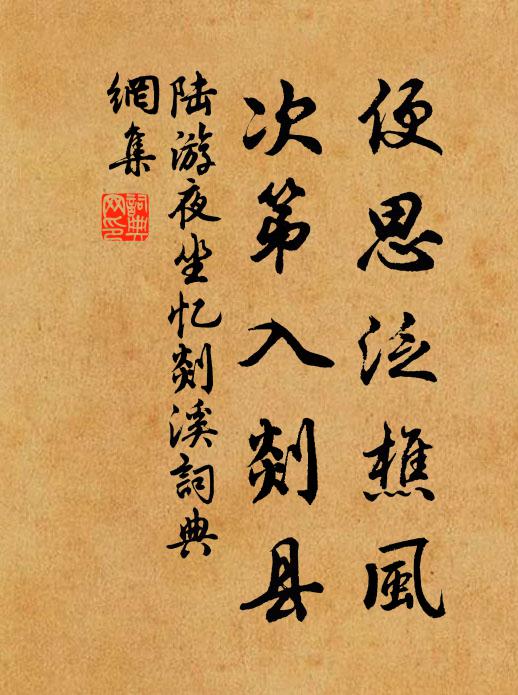 便思泛樵風
次第入剡县
陆游夜坐忆剡溪詞典
網集
詞典
网印